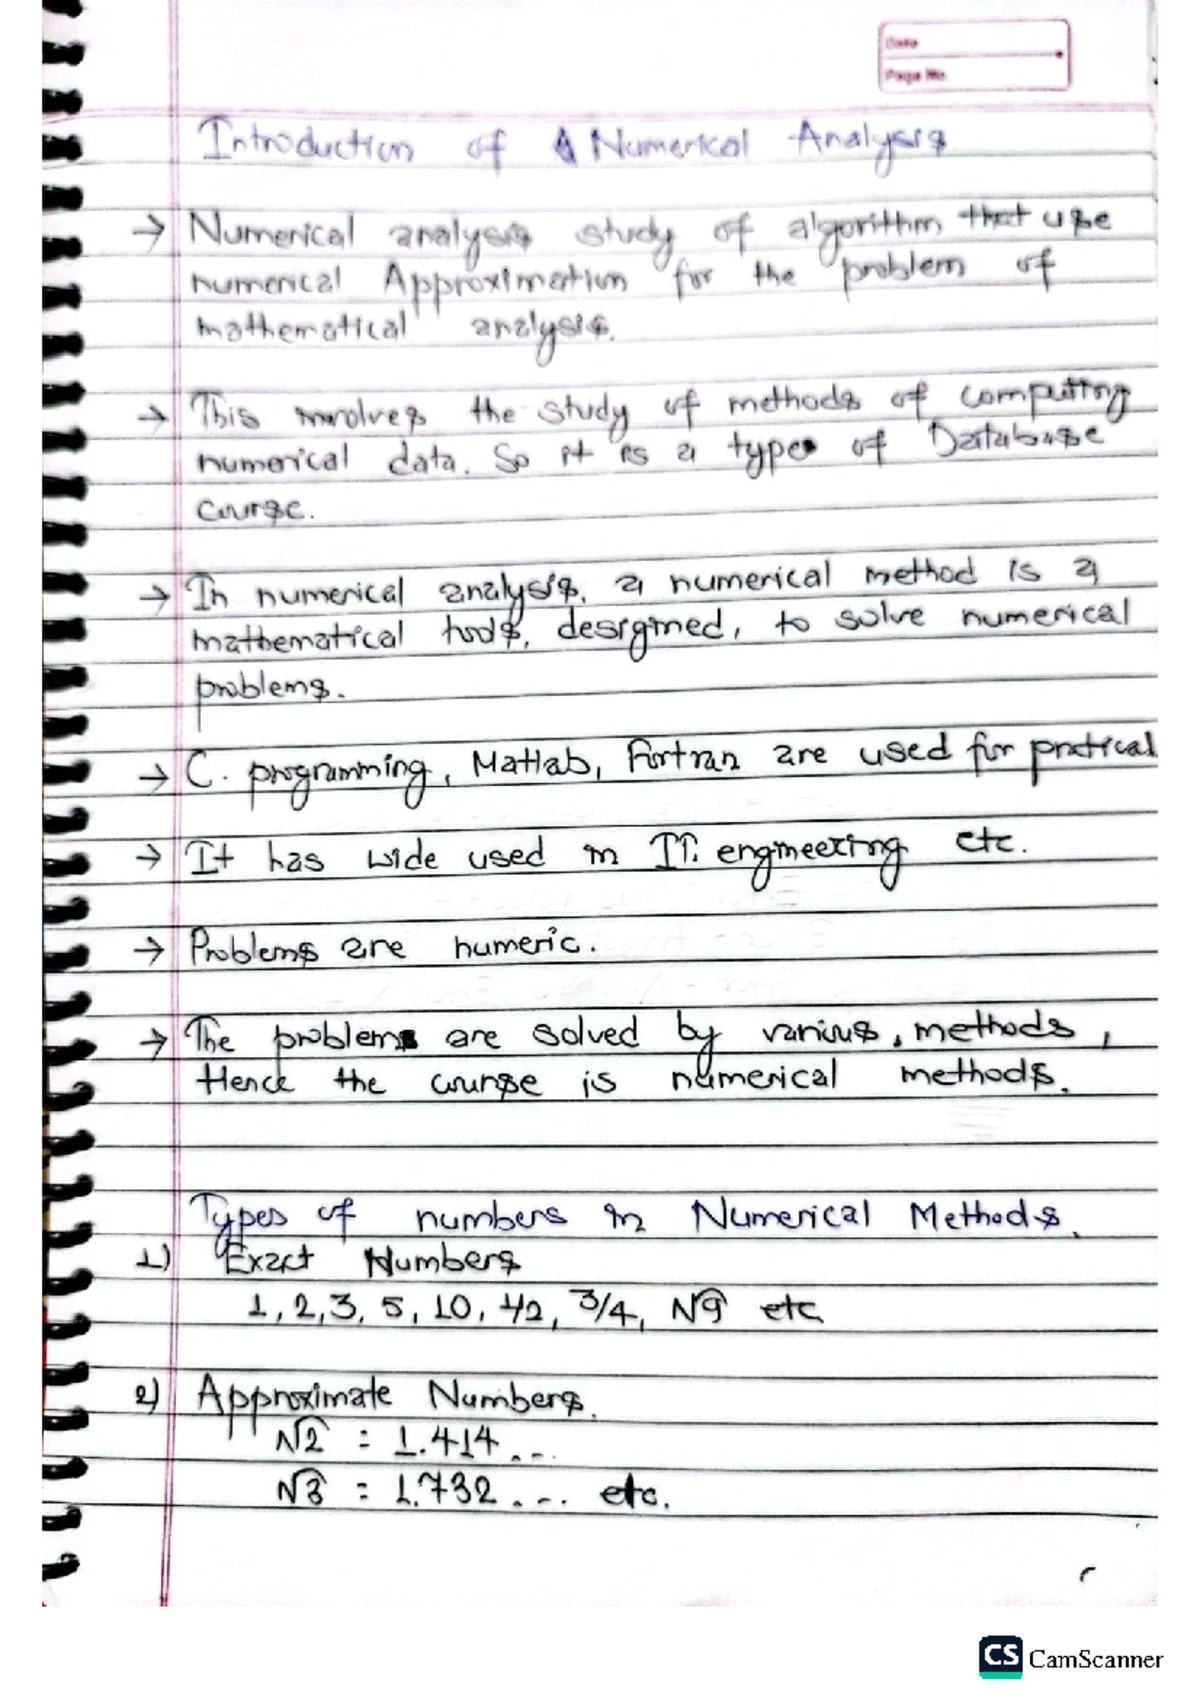 Date
Page No.
Introduction of Numerical Analysis
→ Numerical analysis study of algorithm that use
numerical Approximation for the problem of
mathematical analysis.
→ This involves the study of methods of computing
numerical data. So it is a type of Database
course.
→ In numerical analysis, a numerical method is a
mathematical tools, designed, to solve numerical
problems.
→ C. programming, Matlab, Fortran are used for pratical
→ It has wide used in IT. engineering etc.
→ Problems are numeric.
→ The problems are solved by various, methods,
Hence the course is numerical methods.
Types of numbers in Numerical Methods.
1) Exact Numbers
1, 2, 3, 5, 10, 1/2, 3/4, √9 etc
2) Approximate Numbers.
√2 = 1.414...
√3 = 1.732.... etc.
CS CamScanner